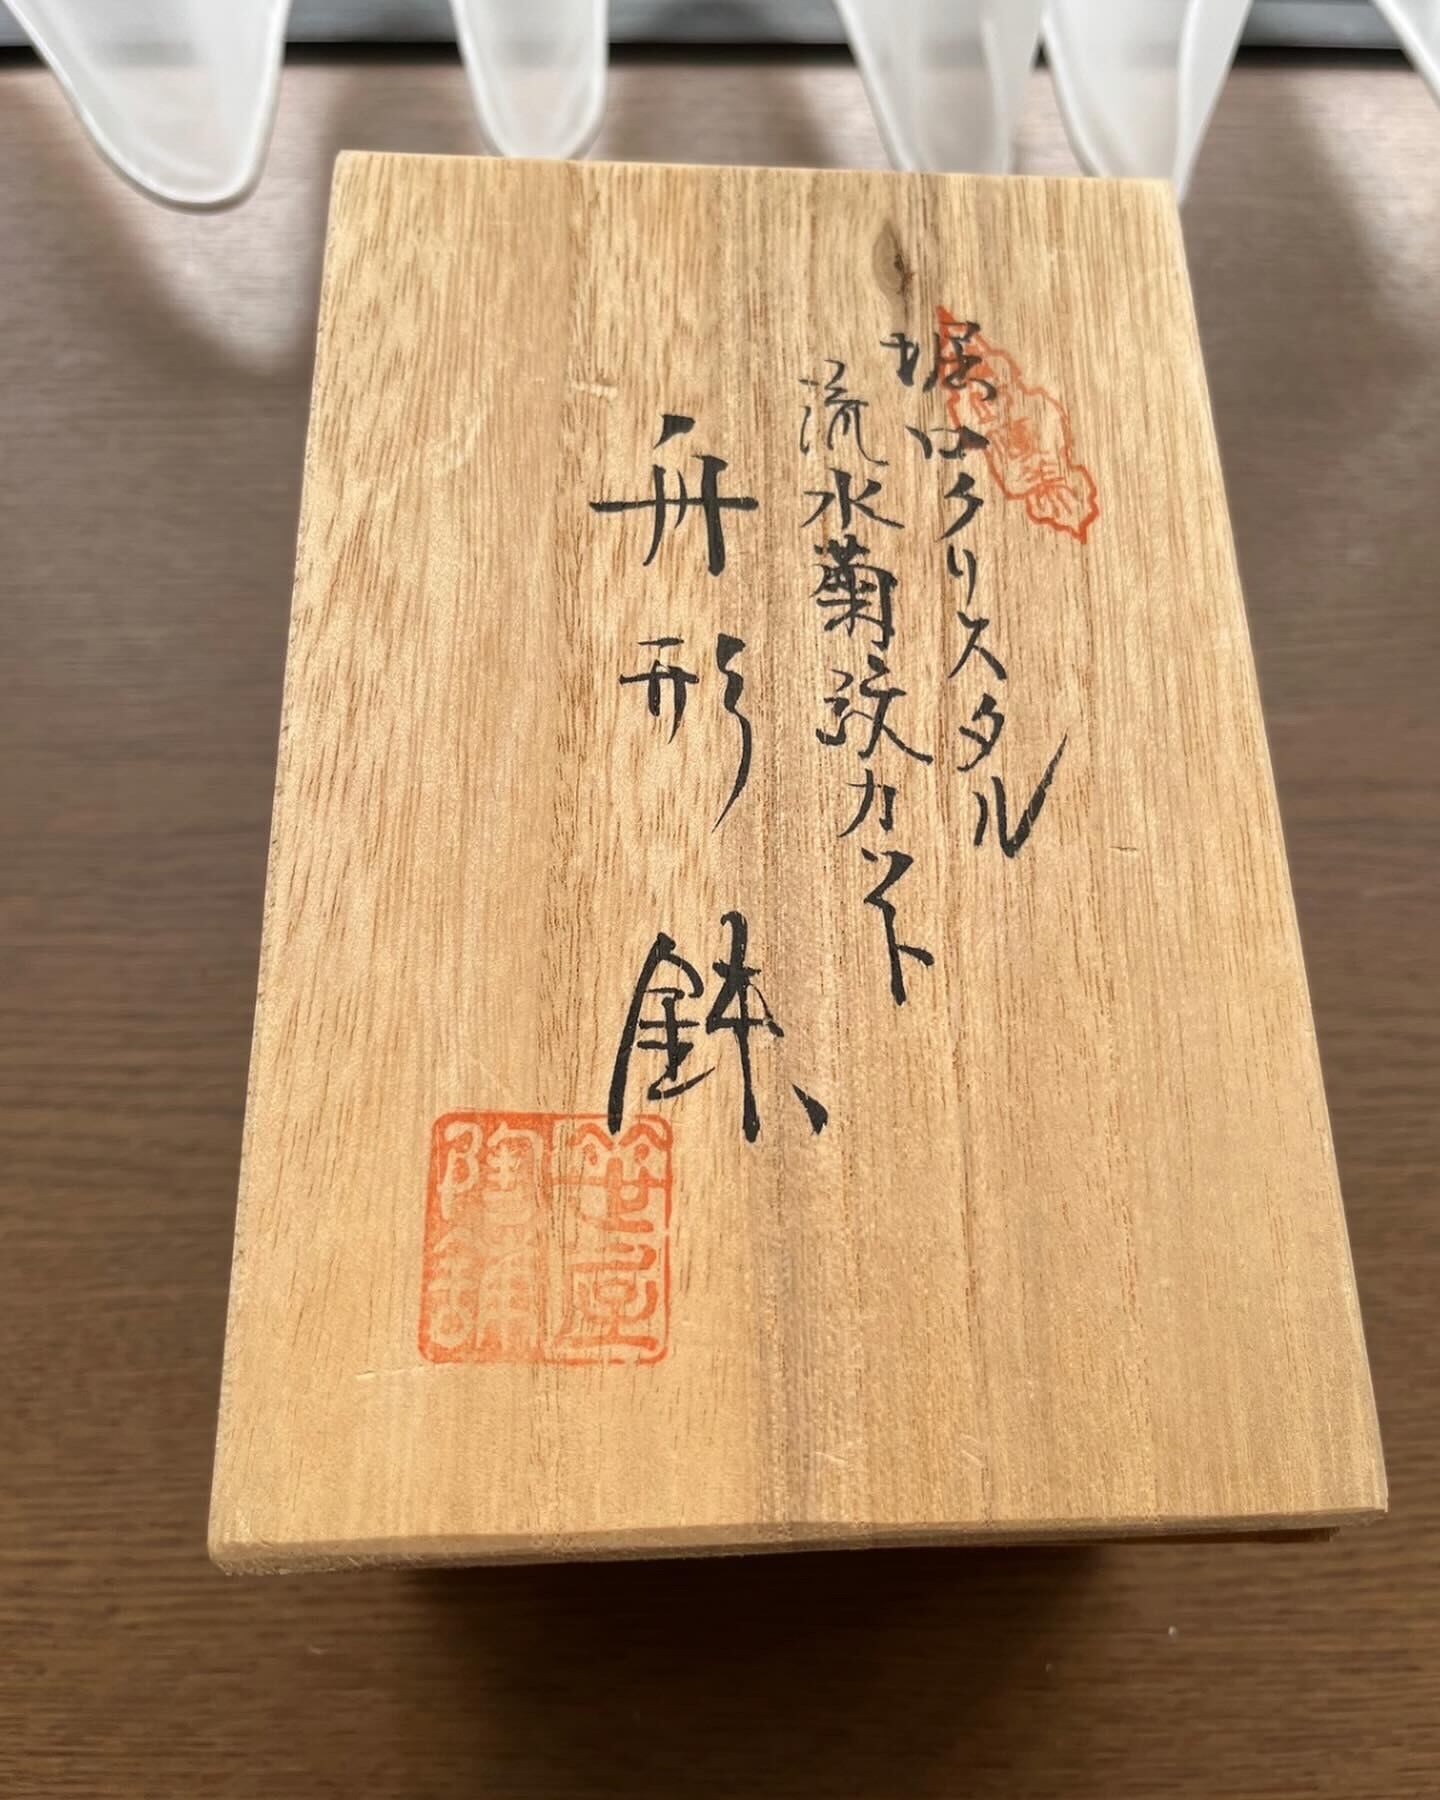 堀口クリスタル
流水菊紋カット
舟形鉢
陶舗